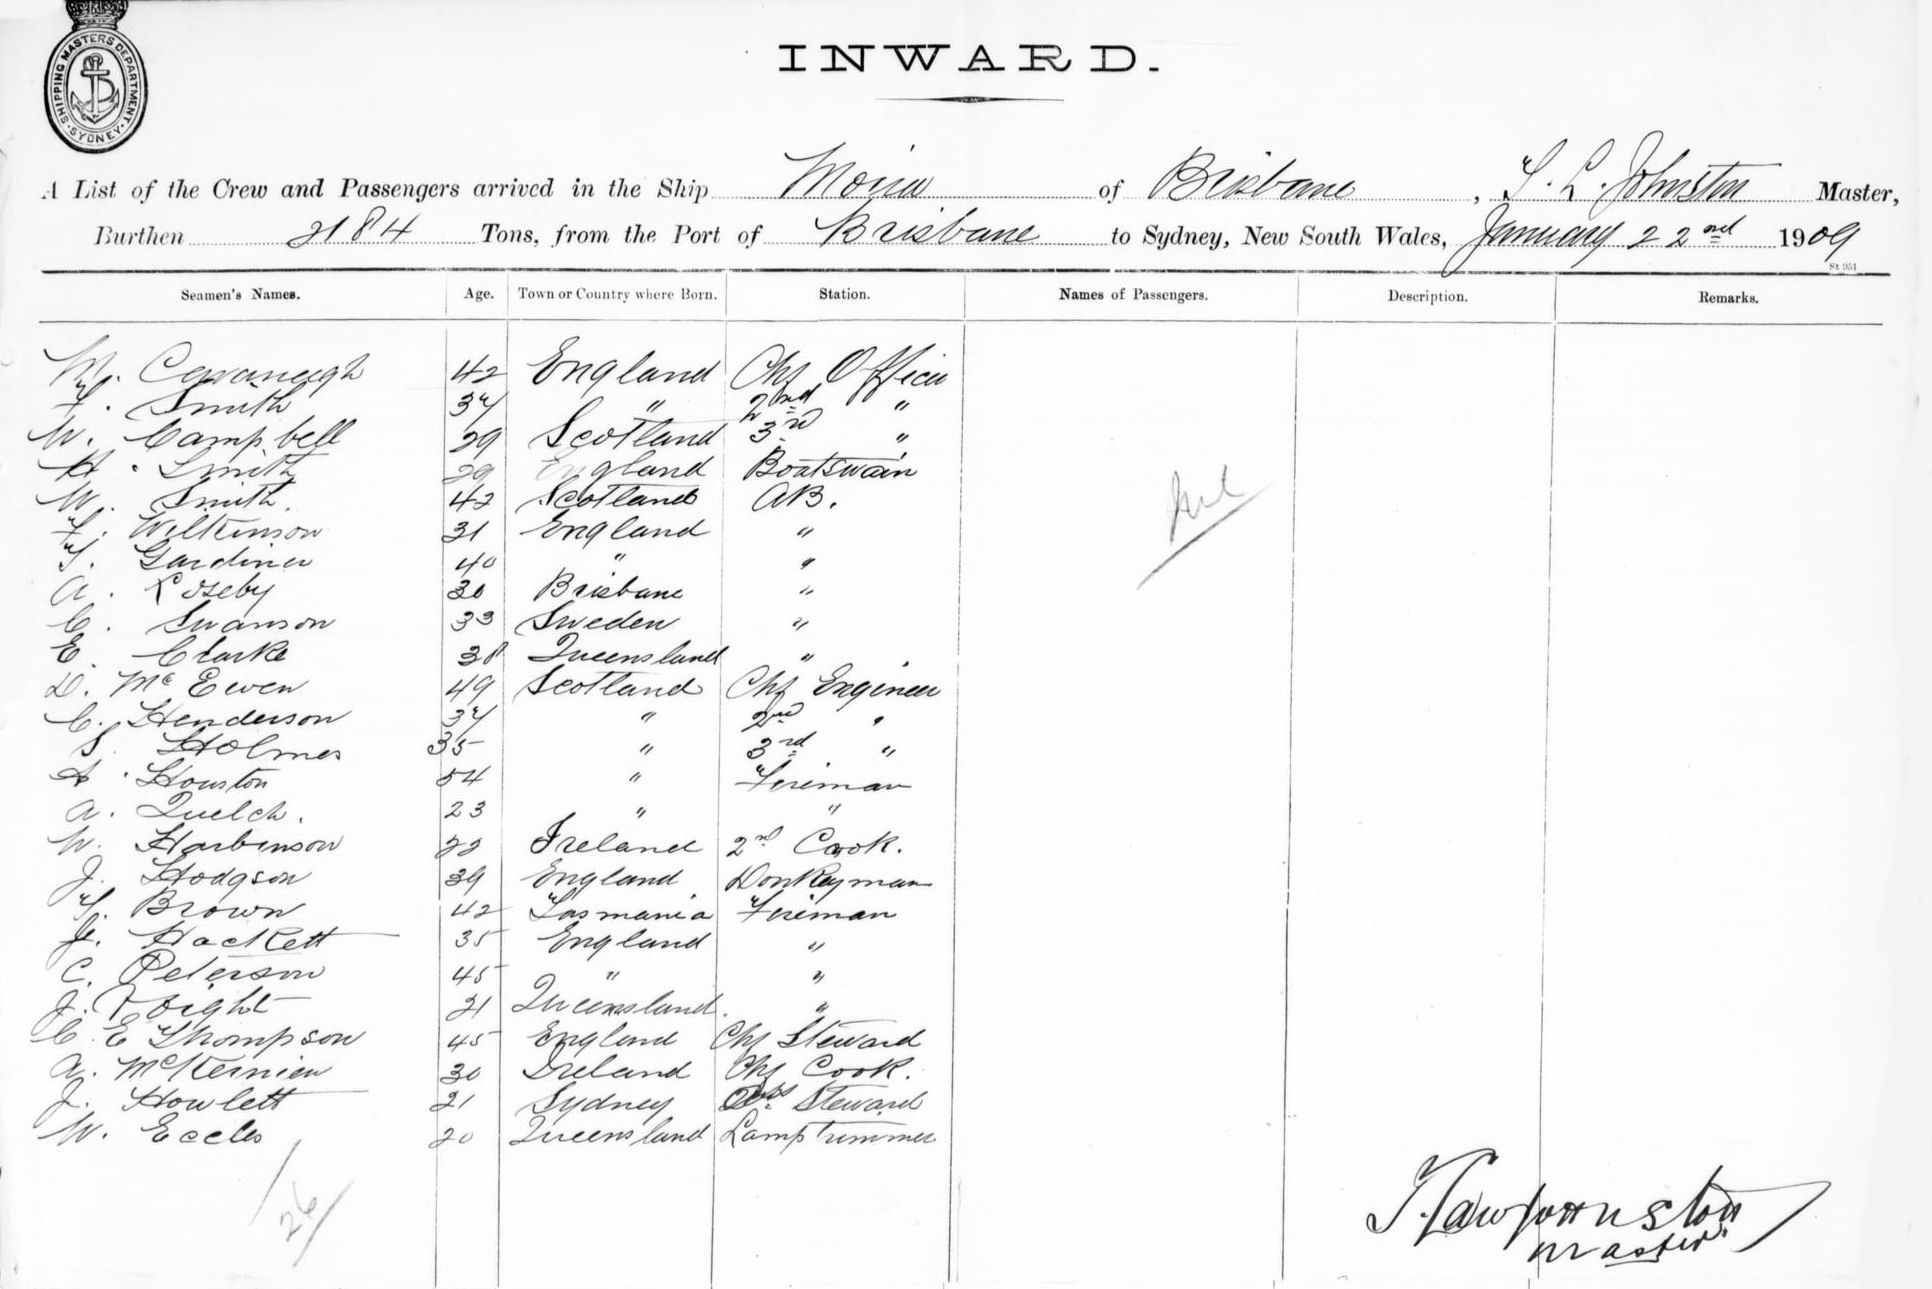 SHIPPING MASTERS DEPARTMENT
SYDNEY
INWARD.
A List of the Crew and Passengers arrived in the Ship Moira of Brisbane, T. L. Johnston Master,
Burthen 2184 Tons, from the Port of Brisbane to Sydney, New South Wales, January 22nd 1909
St 951
Seamen's Names. Age. Town or Country where Born. Station. Names of Passengers. Description. Remarks.
W. Cavanagh 42 England Chf Officer
F. Smith 34 " 2nd "
W. Campbell 29 Scotland 3rd "
H. Smith 29 England Boatswain
W. Smith. 42 Scotland AB.
F. Wilkinson 31 England "
T. Gardiner 40 " "
A. Loseby 30 Brisbane "
C. Swanson 33 Sweden "
E. Clarke 38 Queensland "
D. McEwen 49 Scotland Chf Engineer
C. Henderson 34 " 2nd "
S. Holmes 35 " 3rd "
A. Houston 54 " Fireman
A. Quelch. 23 " "
W. Harbinson 22 Ireland 2nd Cook.
J. Hodgson 39 England Donkeyman
T. Brown 42 Tasmania Fireman
J. Hackett 35 England "
C. Peterson 45 " "
J. Voight 21 Queensland. "
C. E Thompson 45 England Chf Steward
A. McKernien 30 Ireland Chf Cook.
J. Howlett 21 Sydney Steward
W. Eccles 20 Queensland Lamptrimmer
Nil
26
T. Law Johnston
Master.